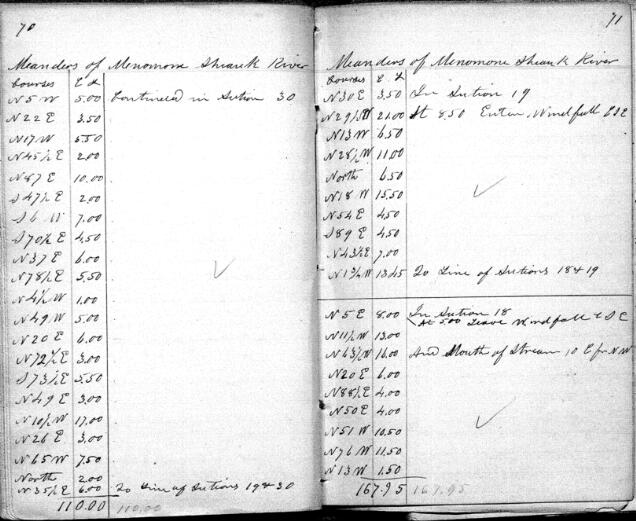 70
Meanders of Menomone Shauk River
Courses C L
N 5 W 5.00 Continued in Section 30
N 22 E 3.50
N 17 W 5.50
N 45½ E 2.00
N 87 E 10.00
S 47½ E 2.00
S 6 W 7.00
S 70½ E 4.50
N 37 E 6.00
N 78½ E 5.50
N 4½ W 1.00
N 49 W 5.00
N 20 E 6.00
N 72½ E 3.00
S 73½ E 5.50
N 49 E 3.00
N 10½ W 17.00
N 26 E 3.00
N 65 W 7.50
North 2.00
N 35½ E 6.00 To Line of Sections 19 & 30
110.00 110.00
71
Meanders of Menomone Shauk River
Courses C L
N 30 E 3.50 In Section 19
N 29½ W 21.00 At 8.50 Enter Windfall
N 13 W 6.50
N 28½ W 11.00
North 6.50
N 18 W 15.50
N 54 E 4.50
S 89 E 4.50
N 43½ E 7.00
N 13½ W 13.45 To Line of Sections 18 & 19
N 5 E 8.00 In Section 18
At 5.00 Leave Windfall
N 11½ W 13.00
N 63½ W 16.00 And Mouth of Stream 10 fr N W
N 20 E 6.00
N 88½ E 4.00
N 50 E 4.00
N 51 W 10.50
N 76 W 11.50
N 13 W 1.50
167.95 167.95